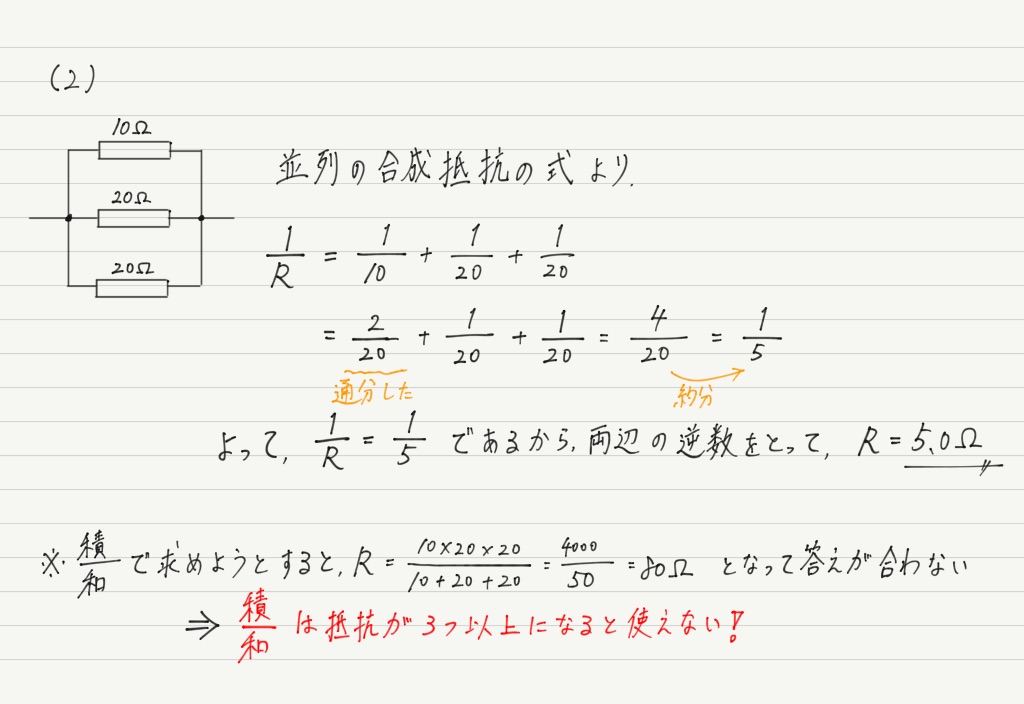 (2)
10Ω
20Ω
20Ω
並列の合成抵抗の式より,
1/R = 1/10 + 1/20 + 1/20
= 2/20 + 1/20 + 1/20 = 4/20 = 1/5
通分した 約分
よって, 1/R = 1/5 であるから, 両辺の逆数をとって, R = 5.0Ω
※ 積/和 で求めようとすると, R = (10×20×20)/(10+20+20) = 4000/50 = 80Ω となって答えが合わない
⇒ 積/和 は抵抗が3つ以上になると使えない!